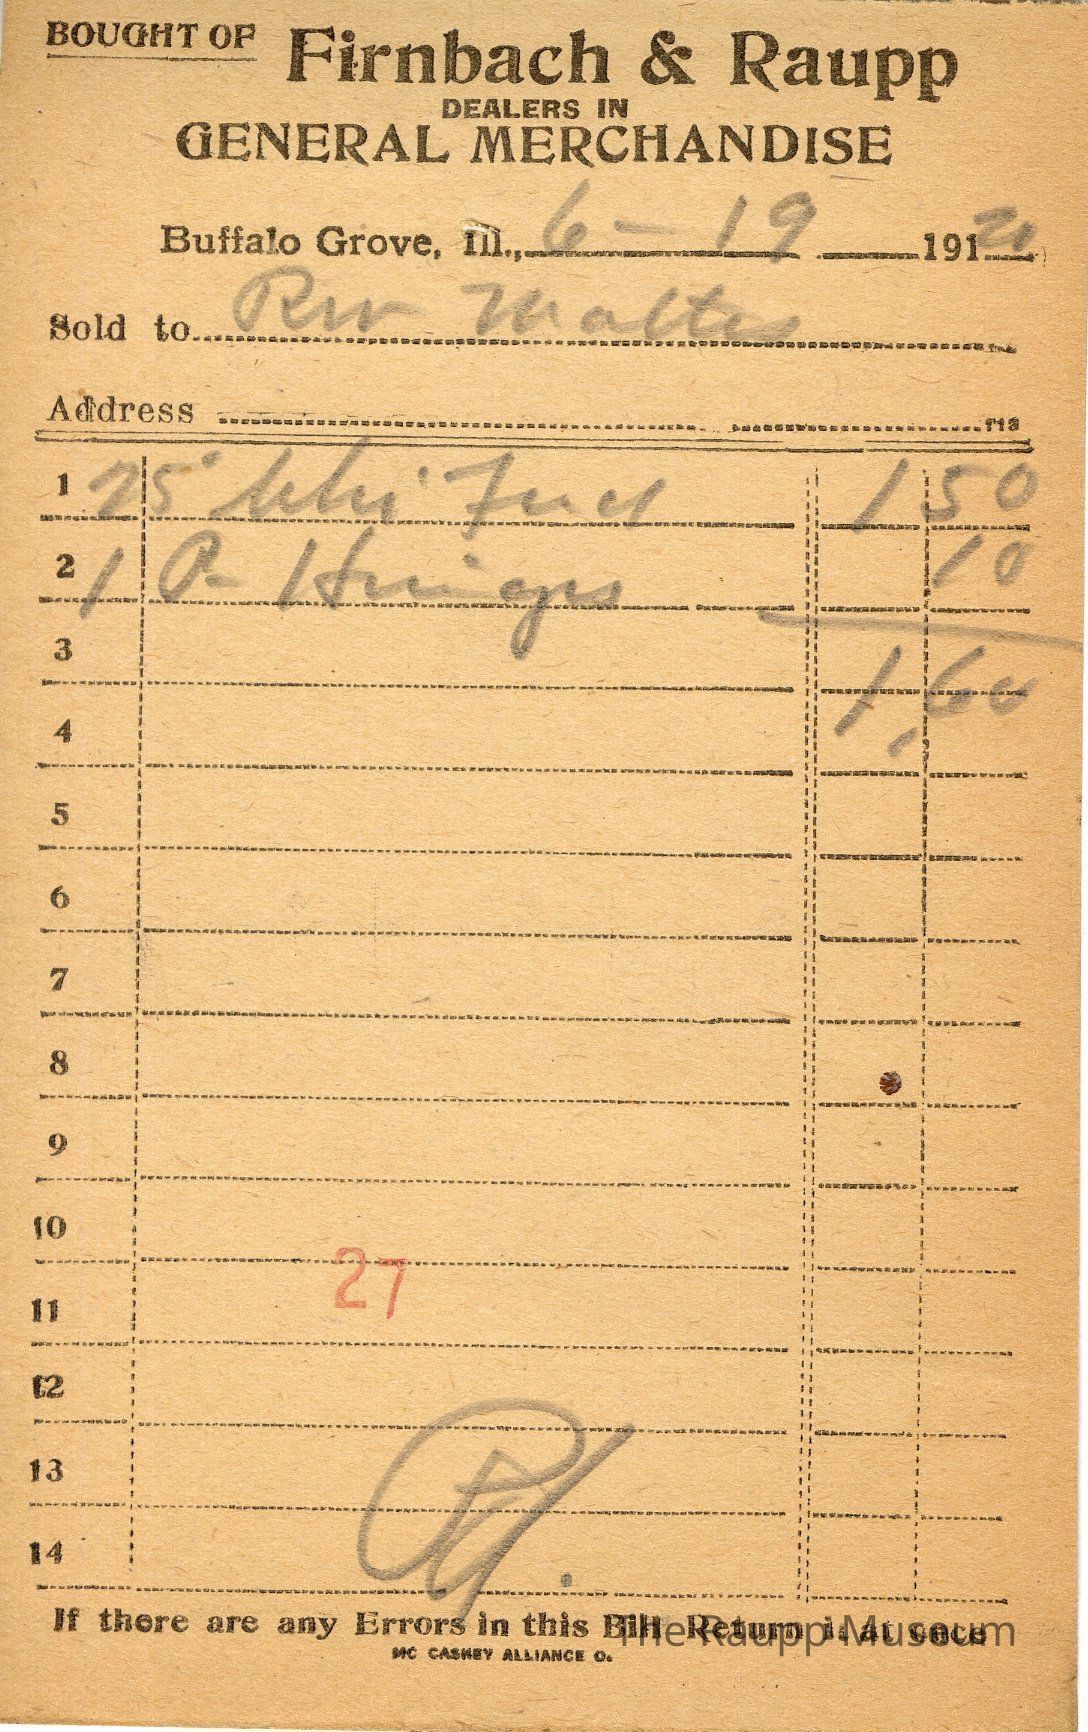 BOUGHT OF Firnbach & Raupp
DEALERS IN
GENERAL MERCHANDISE
Buffalo Grove, Ill., 6-19 191 20
Sold to Rev Maltes
Address
f13
1 25 Chi Feed 1 50
2 1 P Hinges 10
3 1,60
4
5
6
7
8
9
10
27
11
12
13
14
If there are any Errors in this Bill Return it at once
The Raupp Museum
MC CASKEY ALLIANCE O.